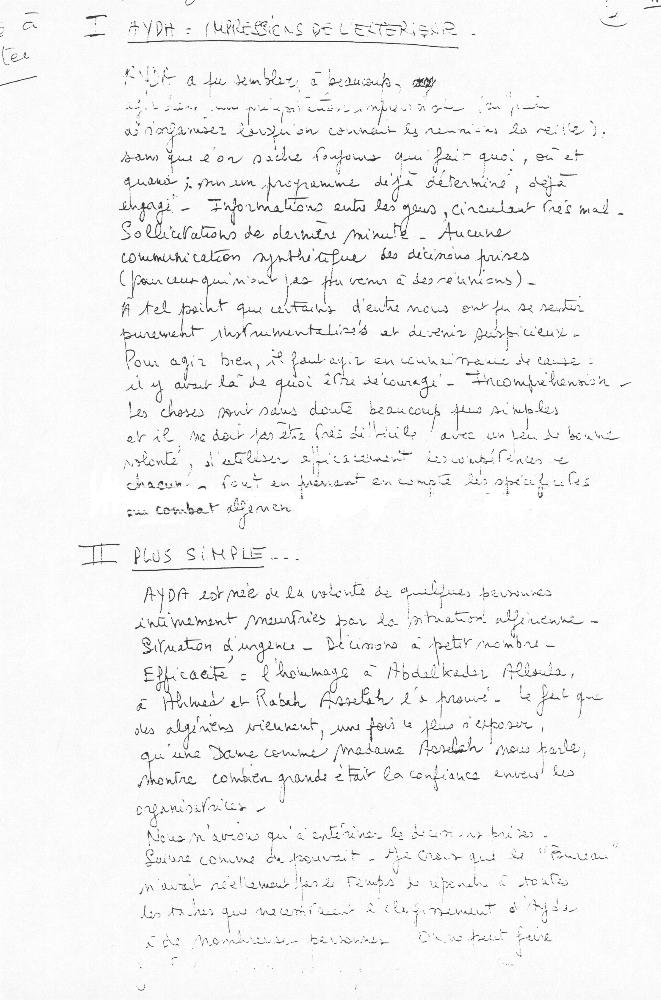 à
I AYDA : IMPRESSIONS DE L'EXTERIEUR -
AYDA a pu sembler, à beaucoup,
agir dans une précipitation improvisée
désorganisée lorsqu'on connait les réunions la veille),
sans que l'on sache toujours qui fait quoi, où et
quand ; sur un programme déjà déterminé, déjà
engagé - Informations entre les gens, circulant très mal -
Sollicitations de dernière minute - Aucune
communication synthétique des décisions prises
(pour ceux qui n'ont pas pu venir à des réunions) -
A tel point que certains d'entre nous ont pu se sentir
purement instrumentalisés et devenir suspicieux -
Pour agir bien, il faut agir en connaissance de cause :
il y avait là de quoi être découragé - Incompréhension -
Les choses sont sans doute beaucoup plus simples
et il ne doit pas être très difficile avec un peu de bonne
volonté, d'utiliser efficacement les compétences de
chacun - Tout en prenant en compte les spécificités
du combat algérien
II PLUS SIMPLE ...
AYDA est née de la volonté de quelques personnes
intimement meurtries par la situation algérienne -
Situation d'urgence - Décisions à petit nombre -
Efficacité : l'hommage à Abdelkader Alloula,
à Ahmed et Rabah Asselah l'a prouvé - Le fait que
des algériens viennent, une fois de plus s'exposer,
qu'une Dame comme Madame Asselah nous parle,
montre combien grande était la confiance envers les
organisatrices -
Nous n'avions qu'à entériner les décisions prises -
Suivre comme on pouvait - Je crois que le "Bureau"
n'avait réellement pas le temps de répondre à toutes
les tâches que nécessitaient l'élargissement d'Ayda
à de nombreuses personnes On ne peut faire